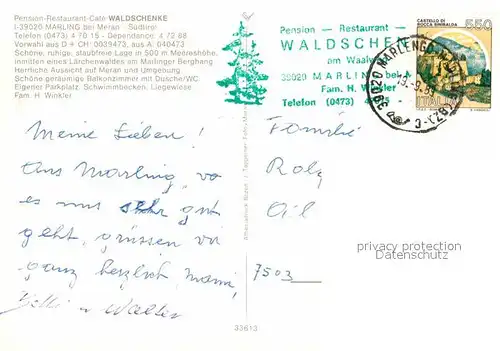 Pension-Restaurant-Café WALDSCHENKE
I-39020 MARLING bei Meran Südtirol
Telefon (0473) 4 70 15 - Dependance: 4 72 88
Vorwahl aus D + CH: 0039473, aus A: 040473
Schöne, ruhige, staubfreie Lage in 500 m Meereshöhe,
inmitten eines Lärchenwaldes am Marlinger Berghang
Herrliche Aussicht auf Meran und Umgebung
Schöne geräumige Balkonzimmer mit Dusche/WC
Eigener Parkplatz, Schwimmbecken, Liegewiese
Fam. H. Winkler
Pension — Restaurant —
WALDSCHEN
am Waalw
39020 MARLING bei
Fam. H. Winkler
Telefon (0473) 4
CASTELLO DI
ROCCA SINIBALDA
550
ITALIA
39020 MARLENGO
(BZ)
Meine Lieben!
Aus Marling, wo
es uns sehr gut
geht, grüssen wir
ganz herzlich, Mami,
u Walter
Familie
7503
privacy protection
VERSANDHANDEL
33613